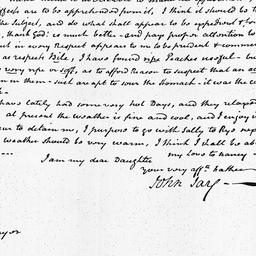 ffects are to be apprehended from it, I think it should be t
the subject, and do what shall appear to be expedient & for
thank God: is much better — and pays great attention to
but in every Respect appears to me to be prudent & comme
as respects Bile, I have found ripe Peaches useful — but
very ripe or soft, as to afford Reason to suspect that an ac
in them — such are apt to sour the stomach — it was the c
have lately had some very hot Days, and they relaxed
at present the weather is fine and cool, and I enjoy it
to detain me, I purpose to go with Sally to Rye nex
weather should be very warm, I think I shall be ab
my Love to Nancy —
I am my dear Daughter
your very affte. Father
John Jay —